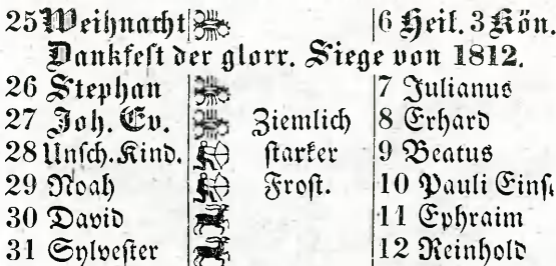 25 Weihnacht 6 Heil. 3 Kön.
Dankfest der glorr. Siege von 1812.
26 Stephan 7 Julianus
27 Joh. Ev. Ziemlich 8 Erhard
28 Unsch. Kind. starker 9 Beatus
29 Noah Frost. 10 Pauli Eins.
30 David 11 Ephraim
31 Sylvester 12 Reinhold